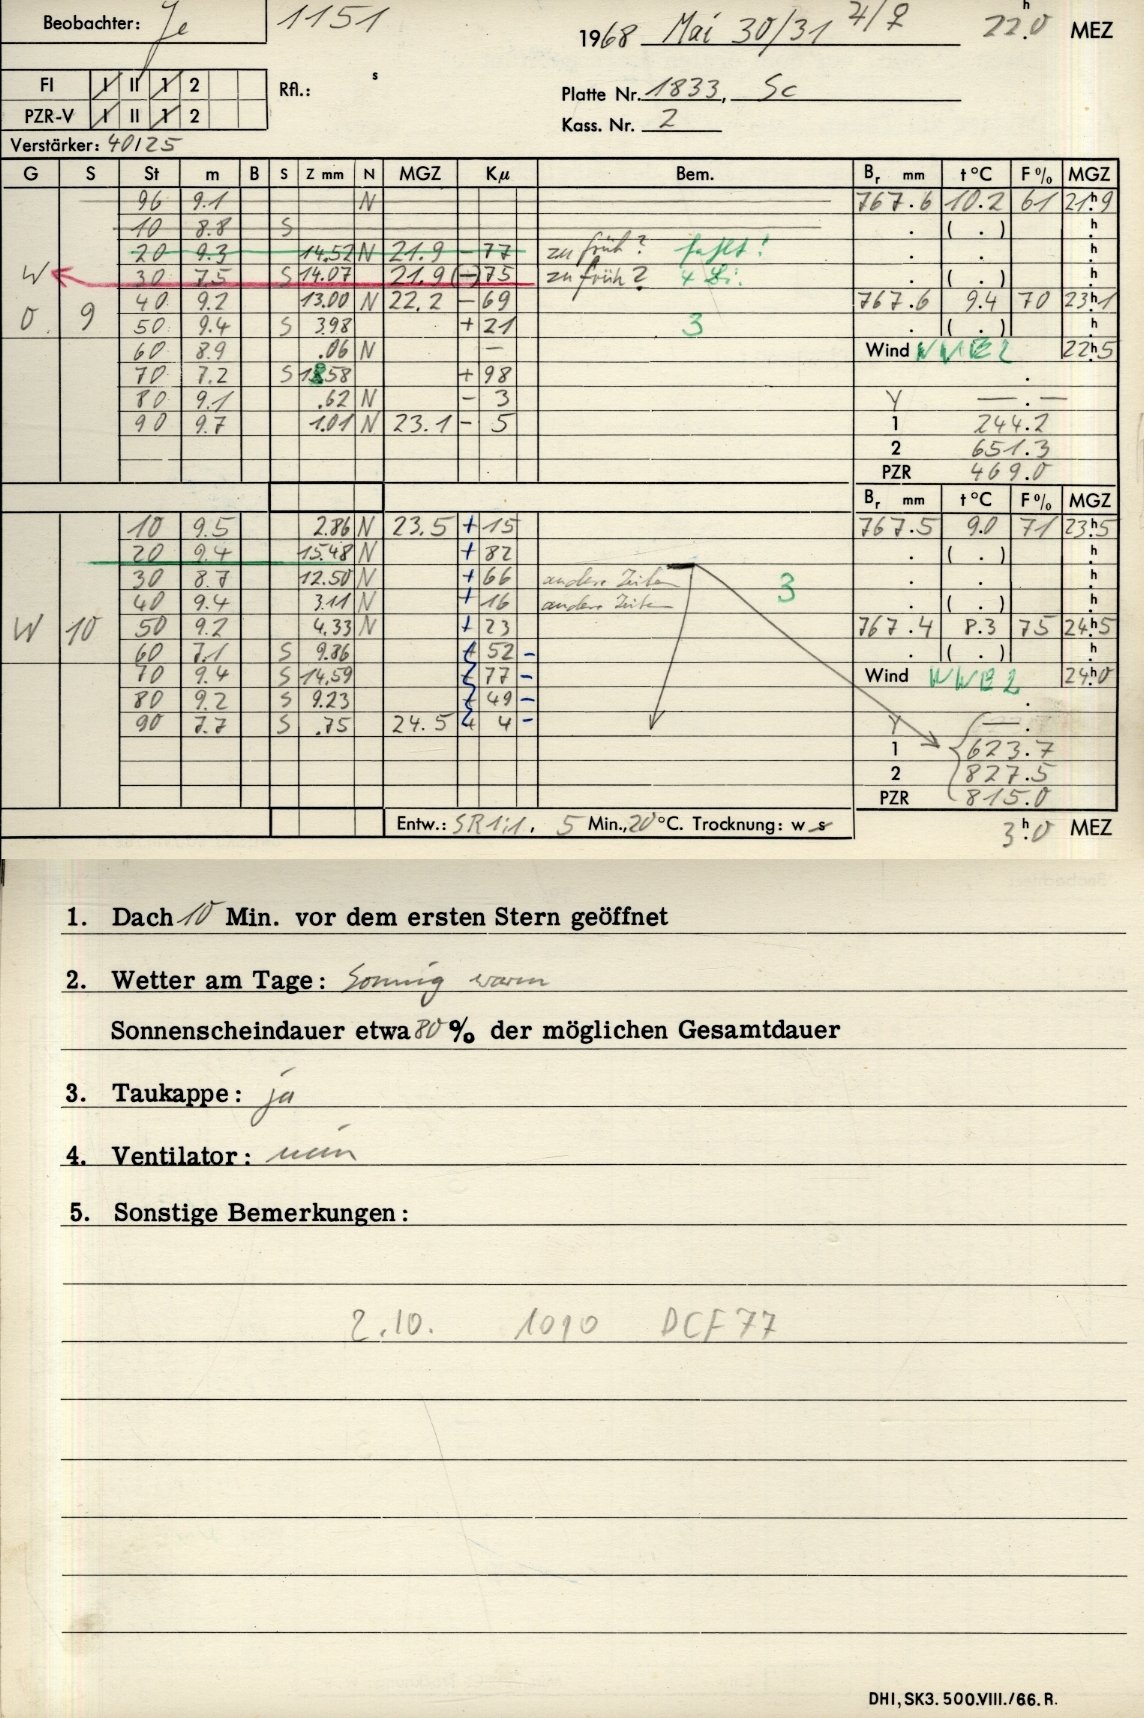 Beobachter: Je 1151 1968 Mai 30/31 4/♀ 22h.0 MEZ
FI I II 1 2 Rfl.: s Platte Nr. 1833, Sc
PZR-V I II 1 2 Kass. Nr. 2
Verstärker: 40/25
G S St m B S Z mm N MGZ Kμ Bem. Br mm t°C F% MGZ
96 9.1 N 767.6 10.2 61 21h9
10 8.8 S . ( . ) h
20 9.3 14.52 N 21.9 - 77 zu früh? fehlt! . . h
W 30 7.5 S 14.07 21.9 (-) 75 zu früh? . ( . ) h
40 9.2 13.00 N 22.2 - 69 767.6 9.4 70 23h1
0. 9 50 9.4 S 3.98 + 21 3 . ( . ) h
60 8.9 .06 N - Wind 22h5
70 7.2 S 58 + 98 .
80 9.1 .62 N - 3 Y — . —
90 9.7 1.01 N 23.1 - 5 1 244.2
2 651.3
PZR 469.0
Br mm t°C F% MGZ
10 9.5 2.86 N 23.5 + 15 767.5 9.0 71 23h5
20 9.4 15.48 N + 82 . ( . ) h
30 8.7 12.50 N + 66 andere Zeiten 3 . . h
40 9.4 3.11 N + 16 andere Zeiten . ( . ) h
W 10 50 9.2 4.33 N + 23 767.4 8.3 75 24h5
60 7.1 S 9.86 52 - . ( . ) h
70 9.4 S 14.59 77 - Wind 24h0
80 9.2 S 9.23 49 - .
90 7.7 S .75 24.5 4 - Y — .
1 623.7
2 827.5
PZR 815.0
Entw.: SR 1:1, 5 Min., 20°C. Trocknung: w s 3h.0 MEZ
1. Dach 10 Min. vor dem ersten Stern geöffnet
2. Wetter am Tage: Sonnig warm
Sonnenscheindauer etwa 80 % der möglichen Gesamtdauer
3. Taukappe: ja
4. Ventilator: nein
5. Sonstige Bemerkungen:
2.10. 1010 DCF77
DHI, SK3. 500.VIII./66. R.